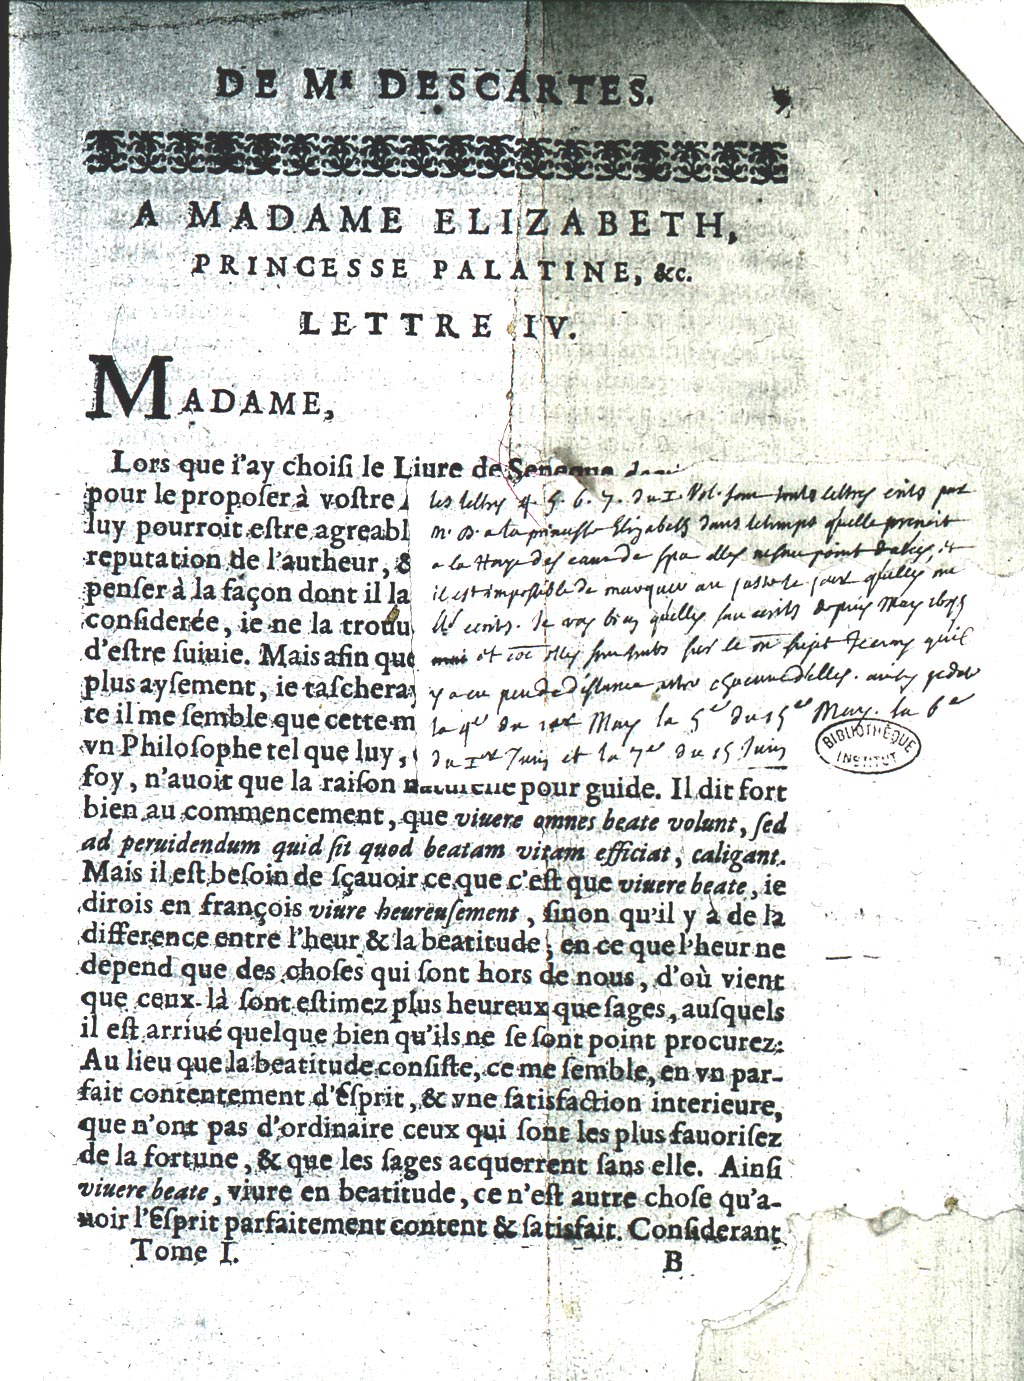 DE Mr DESCARTES.
A MADAME ELIZABETH,
PRINCESSE PALATINE, &c.
LETTRE IV.
MADAME,
Lors que i'ay choiſi le Liure de Seneque
pour le propoſer à voſtre
luy pourroit eſtre agreabl
reputation de l'autheur, &
penſer à la façon dont il la
conſiderée, ie ne la trouu
d'eſtre ſuiuie. Mais afin que
plus ayſement, ie taſcheray
te il me ſemble que cette m
vn Philoſophe tel que luy,
les lettres 4. 5. 6. 7. du I. Vol. sont toutes lettres écrits par
Mr D. a la princesse Elizabeth dans le temps quelle prenoit
a la Haye des eaux de spa elles ne sont point datées, et
il est impossible de marquer au juste le jour qu'elles
écrits. Je voy bien qu'elles sont écrits depuis May 1645
et
y a eu peu de distance entre chacune d'elles. ainsi
la 4e du 1er May la 5e du 15e May. la 6e
du 1er Juin et la 7e du 15 Juin
BIBLIOTHÈQUE
INSTITUT
foy, n'auoit que la raiſon naturelle pour guide. Il dit fort
bien au commencement, que viuere omnes beate volunt, ſed
ad peruidendum quid ſit quod beatam vitam efficiat, caligant.
Mais il eſt beſoin de ſçauoir ce que c'eſt que viuere beate, ie
dirois en françois viure heureuſement, ſinon qu'il y a de la
difference entre l'heur & la beatitude; en ce que l'heur ne
depend que des choſes qui ſont hors de nous, d'où vient
que ceux-là ſont eſtimez plus heureux que ſages, auſquels
il eſt arriué quelque bien qu'ils ne ſe ſont point procurez:
Au lieu que la beatitude conſiſte, ce me ſemble, en vn par-
fait contentement d'Eſprit, & vne ſatisfaction interieure,
que n'ont pas d'ordinaire ceux qui ſont les plus fauoriſez
de la fortune, & que les ſages acquerrent ſans elle. Ainſi
viuere beate, viure en beatitude, ce n'eſt autre choſe qu'a-
uoir l'Eſprit parfaitement content & ſatisfait. Conſiderant
Tome I. B